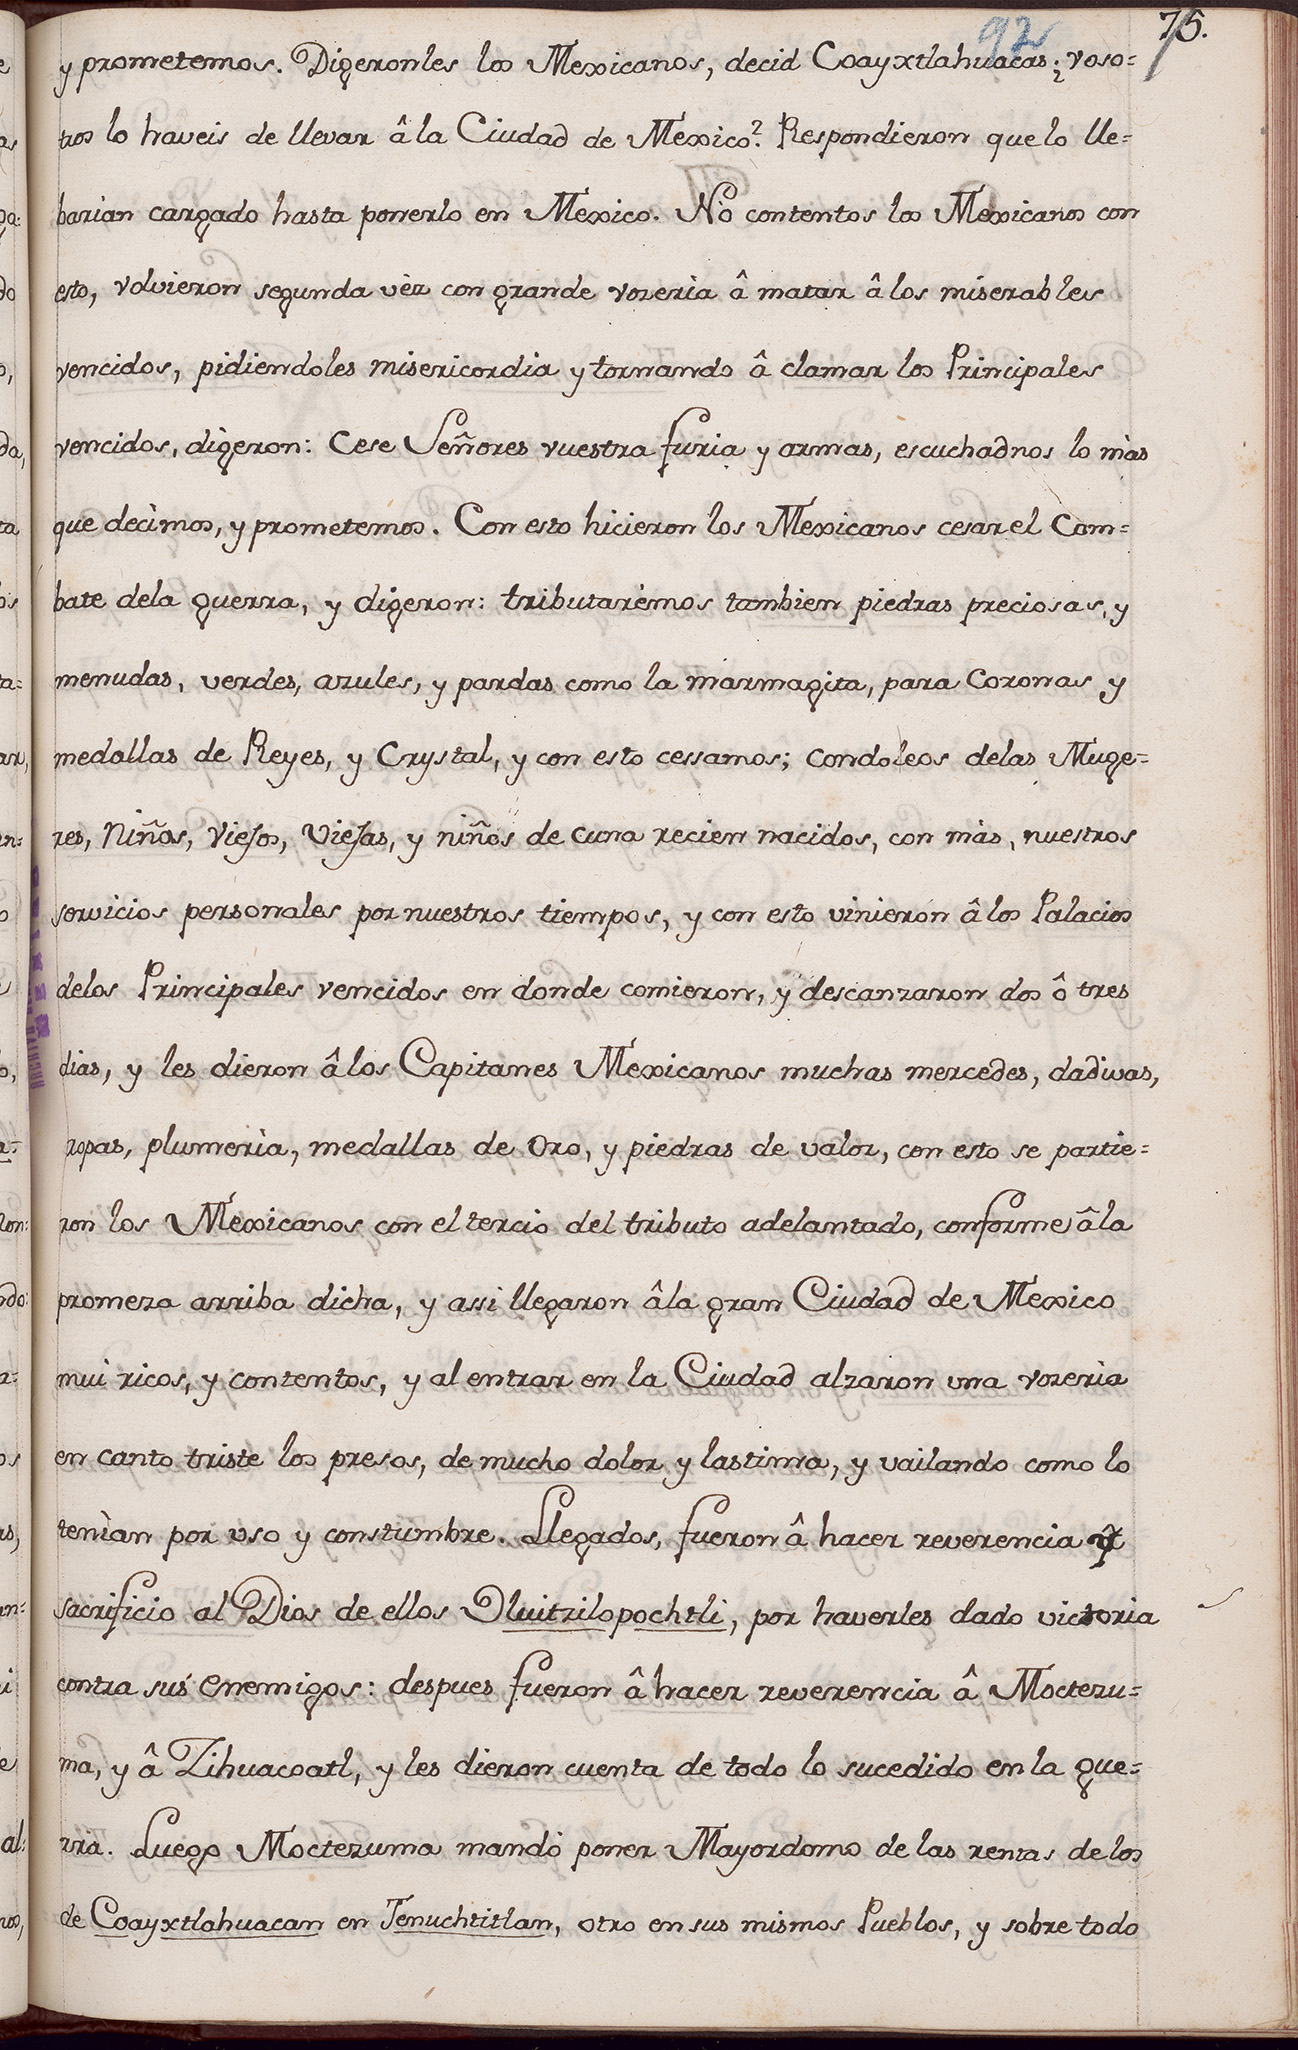 92 75.
y prometemos. Digeronles los Mexicanos, decid Coayxtlahuacas; ¿voso=
tros lo haveis de llevar â la Ciudad de Mexico? Respondieron que lo lle=
barian cargado hasta ponerlo en Mexico. No contentos los Mexicanos con
esto, volvieron segunda vèz con grande vozerìa â matar â los miserables
vencidos, pidiendoles misericordia y tornando â clamar los Principales
vencidos, digeron: Cese Señores vuestra furia y armas, escuchadnos lo màs
que decìmos, y prometemos. Con esto hicieron los Mexicanos cesar el Com=
bate dela guerra, y digeron: tributarèmos tambien piedras preciosas, y
menudas, verdes, azules, y pardas como la marmagita, para Coronas y
medallas de Reyes, y Crystal, y con esto cessamos; condoleos delas Muge=
res, Niños, Viejos, Viejas, y niños de cuna recien nacidos, con màs, nuestros
servicios personales por nuestros tiempos, y con esto vinieron â los Palacios
delos Principales vencidos en donde comieron, y descanzaron dos ô tres
dias, y les dieron â los Capitanes Mexicanos muchas mercedes, dadivas,
ropas, plumerìa, medallas de Oro, y piedras de valor, con esto se partie=
ron los Mexicanos con el tercio del tributo adelantado, conforme â la
promeza arriba dicha, y assi llegaron â la gran Ciudad de Mexico
mui ricos, y contentos, y al entrar en la Ciudad alzaron una vozerìa
en canto triste los presos, de mucho dolor y lastima, y vailando como lo
tenìan por uso y constumbre. Llegados, fueron â hacer reverencia y
sacrificio al Dios de ellos Huitzilopochtli, por haverles dado victoria
contra sus enemigos: despues fueron â hacer reverencia â Moctezu=
ma, y â Zihuacoatl, y les dieron cuenta de todo lo sucedido en la gue=
rra. Luego Moctezuma mandó poner Mayordomo de las rentas de los
de Coayxtlahuacan en Tenuchtitlan, otro en sus mismos Pueblos, y sobre todo